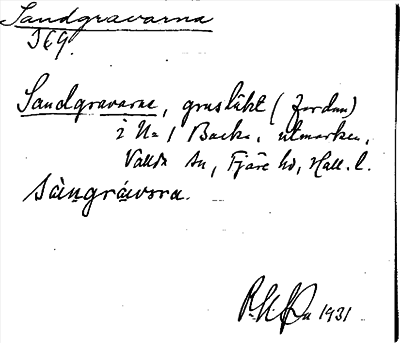 Sandgravarna
IEg.
Sandgravarne, gruslükt (fordom)
i No 1 Backa, utmarken,
Vallda sn, Fjäre hd, Hall. l.
sàngrávora.
1931